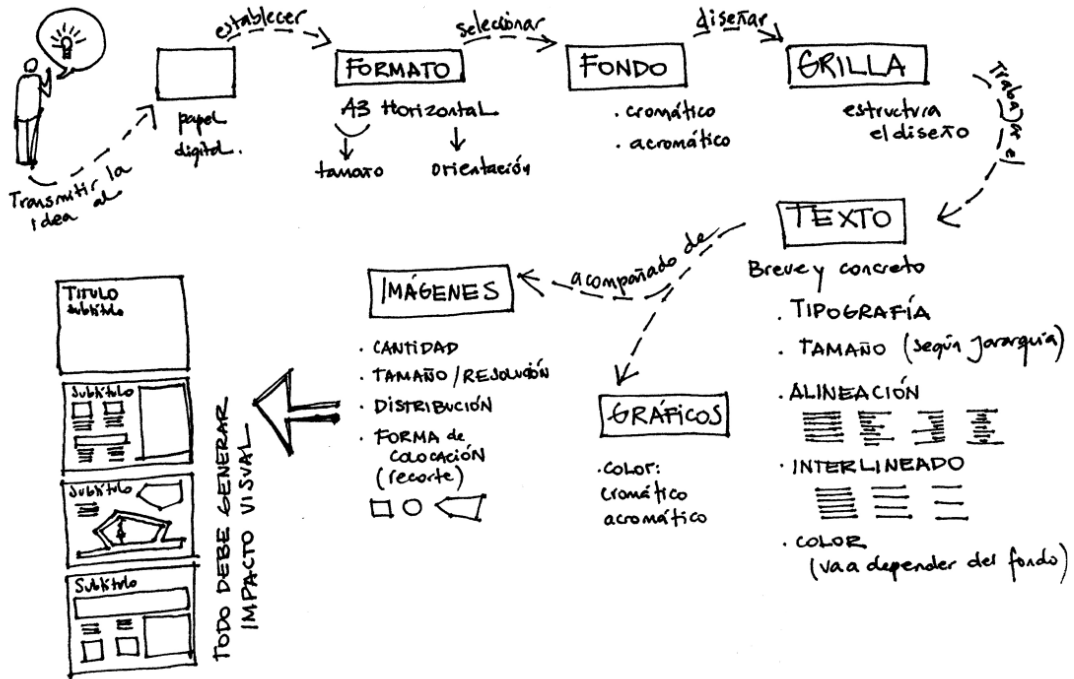 Transmitir la
idea al
papel
digital.
establecer
FORMATO
A3 Horizontal
tamaño
orientación
seleccionar
FONDO
. cromático
. acromático
diseñar
GRILLA
estructura
el diseño
Trabajar el
TEXTO
Breve y concreto
. TIPOGRAFÍA
. TAMAÑO (según jerarquía)
. ALINEACIÓN
. INTERLINEADO
. COLOR
(va a depender del fondo)
acompañado de
IMÁGENES
. CANTIDAD
. TAMAÑO / RESOLUCIÓN
. DISTRIBUCIÓN
. FORMA de
COLOCACIÓN
(recorte)
GRÁFICOS
. COLOR:
cromático
acromático
TODO DEBE GENERAR
IMPACTO VISUAL
TITULO
subtítulo
Subtítulo
Subtítulo
Subtítulo